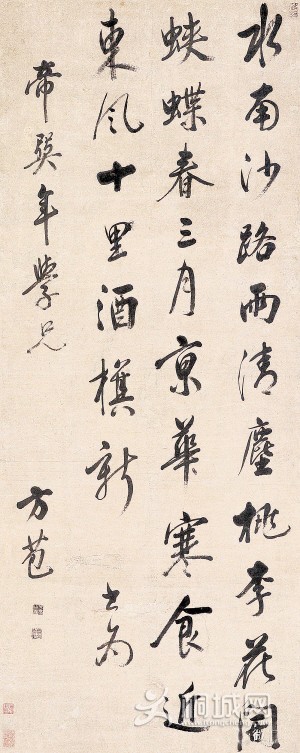 水南沙路雨清塵桃李花開
蛺蝶春三月京華寒食近
東風十里酒旗新 書為
帝巽年學兄
方苞
桐城网